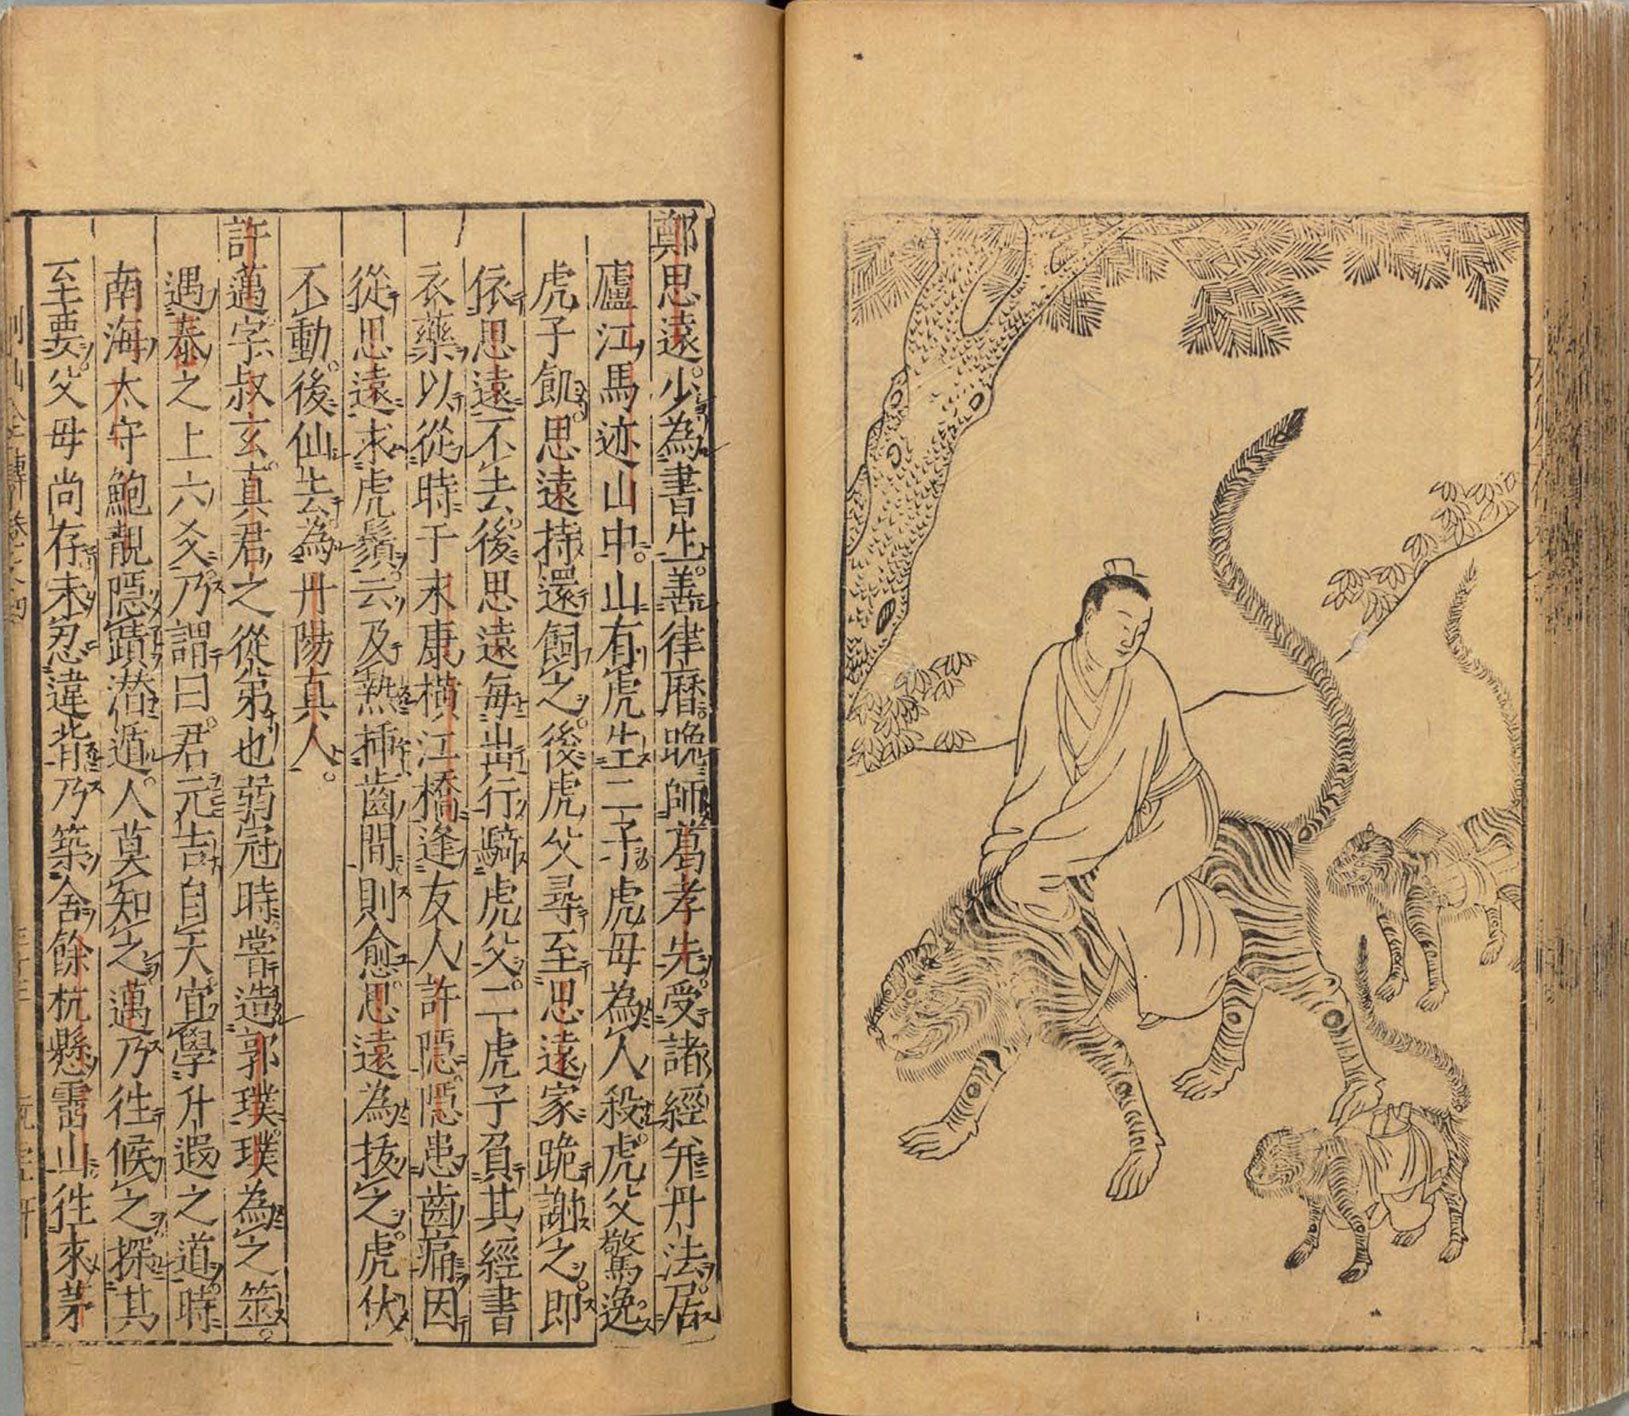 鄭思遠。少為書生。善律曆。晚師葛孝先。受諸經并丹法。居
廬江馬迹山中。山有虎生二子。虎母為人殺。虎父驚逸。
虎子飢。思遠持還飼之。後虎父尋至思遠家跪謝之。即
依思遠不去。後思遠每出行騎虎父。二虎子負其經書
衣藥以從。時于永康橫江橋逢友人許隱。隱患齒痛。因
從思遠求虎鬚。云及熱插齒間則愈。思遠為拔之。虎伏
不動。後仙去。為丹陽真人。
許邁字叔玄。真君之從弟也。弱冠時嘗造郭璞。璞為之筮。
遇泰之上六爻。乃謂曰。君元吉自天。宜學升遐之道。時
南海太守鮑靚隱蹟潛遁。人莫知之。邁乃往候之。探其
至要。父母尚存。未忍違背。乃築舍餘杭懸霤山。往來茅
列仙全傳 卷之四